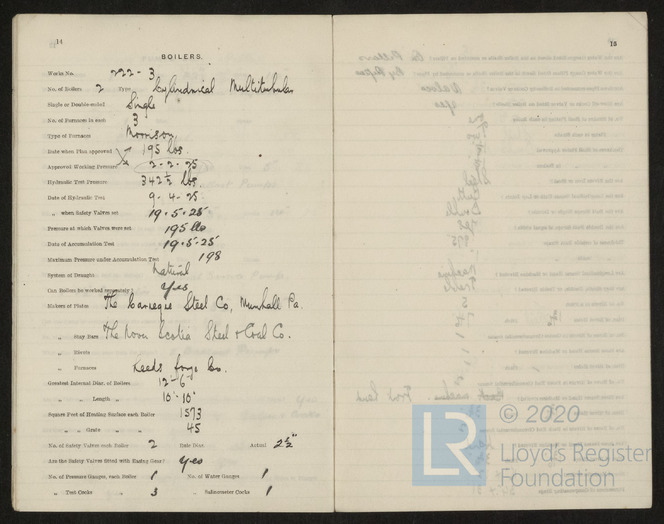 14
BOILERS.
Works No. 222-3
No. of Boilers 2 Type Cylindrical Multitubular
Single or Double-ended Single
No. of Furnaces in each 3
Type of Furnaces Morrison
Date when Plan approved 195 lbs.
Approved Working Pressure 2-2-25
Hydraulic Test Pressure 342½ lbs.
Date of Hydraulic Test 9-4-25
„ when Safety Valves set 19.5.25
Pressure at which Valves were set 195 lbs
Date of Accumulation Test 19.5.25
Maximum Pressure under Accumulation Test 198
System of Draught Natural
Can Boilers be worked separately? Yes
Makers of Plates The Carnegie Steel Co, Munhall Pa.
„ Stay Bars The Nova Scotia Steel & Coal Co.
„ Rivets
„ Furnaces Leeds Forge Co.
Greatest Internal Diam. of Boilers 12'-6"
„ „ Length „ 10'-10"
Square Feet of Heating Surface each Boiler 1573
„ „ Grate „ „ 45
No. of Safety Valves each Boiler 2 Rule Diam. Actual 2½"
Are the Safety Valves fitted with Easing Gear? Yes
No. of Pressure Gauges, each Boiler 1 No. of Water Gauges 1
„ Test Cocks „ 3 „ Salinometer Cocks 1
15
© 2020
LR
Lloyd's Register
Foundation